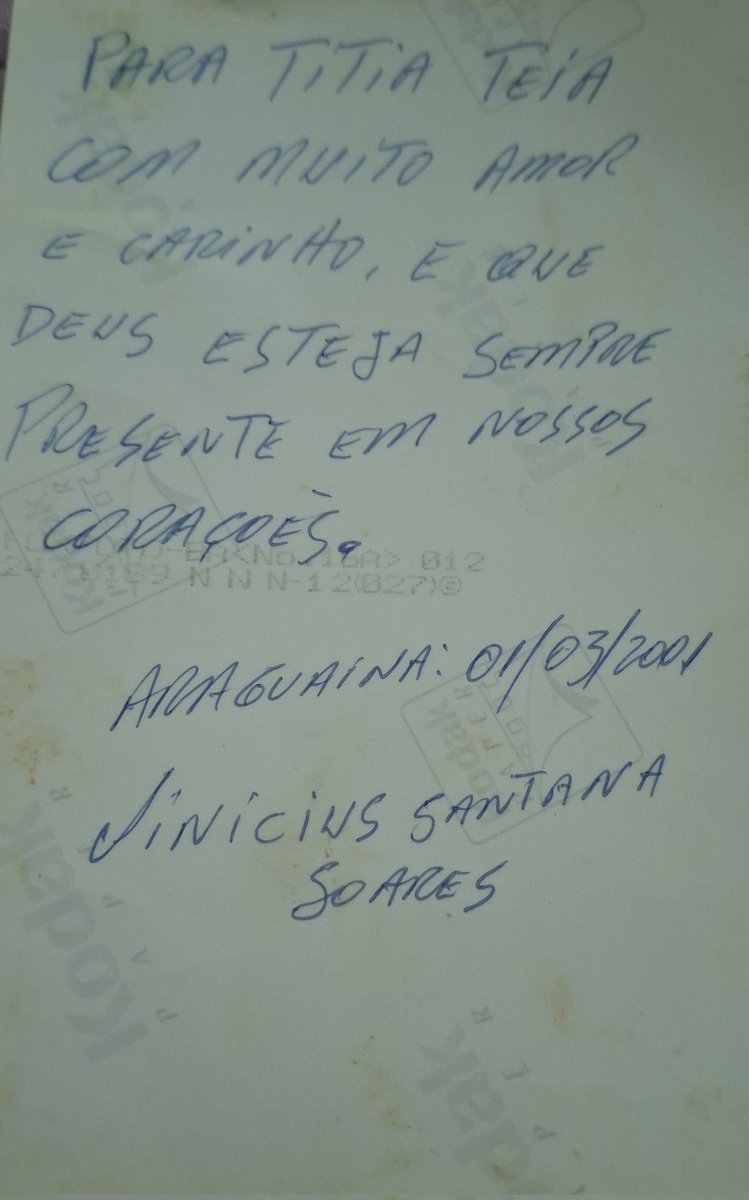 PARA TITIA TEIA
COM MUITO AMOR
E CARINHO, E QUE
DEUS ESTEJA SEMPRE
PRESENTE EM NOSSOS
CORAÇOES.
012
24 N N N-12(027)
ARAGUAINA: 01/03/2001
VINICIUS SANTANA
SOARES
Kodak
Kodak
Kodak
Kodak